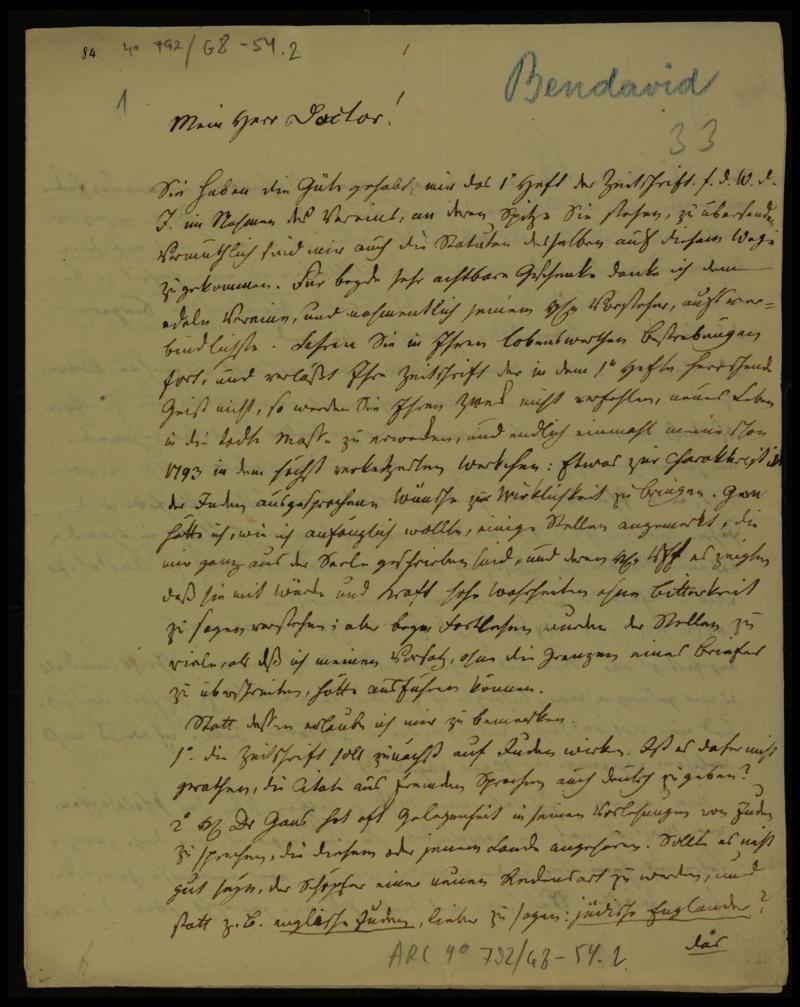 84 4° 792/G8-54.2
Bendavid
1
33
Mein Herr Doctor!
Sie haben die Güte gehabt, mir das 1° Heft der Zeitschrift. f. d. W. d.
J. im Nahmen des Vereins, an deren Spitze Sie stehen, zu übersenden
Vermuthlich sind mir auch die Statuten desselben auf diesem Wege
zugekommen. Für beyde sehr achtbare Geschenke danke ich dem
edeln Vereine, und nahmentlich seinem Vorsteher, aufs ver=
bindlichste. Fahren Sie in Ihren lobenswerthen Bestrebungen
fort, und verläßt Ihre Zeitschrift der in dem 1n Hefte herrschende
Geist nicht, so werden Sie Ihren Zweck nicht verfehlen, neues Leben
in die todte Masse zu erwecken, und endlich einmahl meine schon
1793 in dem höchst verketzerten Werkchen: Etwas zur Charakteristik
der Juden ausgesprochenen Wünsche zur Wirklichkeit zu bringen. Gern
hätte ich, wie ich anfänglich wollte, einige Stellen angemerkt, die
mir ganz aus der Seele geschrieben sind, und deren es zeigten
daß sie mit Würde und Kraft hohe Wahrheiten ohne Bitterkeit
zu sagen verstehen; aber beym Fortlesen wurden der Stellen zu
viele, als daß ich meinen Vorsatz, ohne die Grenzen eines Briefes
zu überschreiten, hätte ausführen können.
Statt dessen erlaube ich mir zu bemerken.
1°. die Zeitschrift soll zunächst auf Juden wirken. Ist es daher nicht
gerathen, die Citate aus fremden Sprachen auch deutsch zu geben?
2° Dr Gans hat oft Gelegenheit in seinen Vorlesungen von Juden
zu sprechen, die diesem oder jenem Lande angehören. Sollte es nicht
gut seyn, der Schöpfer einer neuen Redensart zu werden, und
statt z. B. englische Juden, lieber zu sagen: jüdische Engländer?
das
ARC 4° 792/G8-54.2